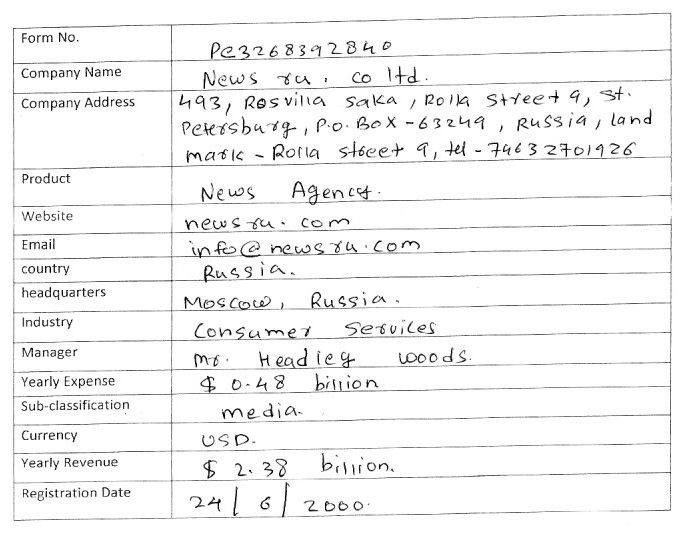 Form No. Pc3268392840
Company Name News ru. co ltd.
Company Address 493, Rosvilla saka, Rolla street 9, St.
Petersburg, P.O. Box - 63249, Russia, land
mark - Rolla street 9, tel - 74632701926
Product News Agency.
Website newsru.com
Email info@newsru.com
country Russia.
headquarters Moscow, Russia.
Industry Consumer Services
Manager Mr. Headley woods.
Yearly Expense $ 0.48 billion
Sub-classification media.
Currency USD.
Yearly Revenue $ 2.38 billion.
Registration Date 24/6/2000.